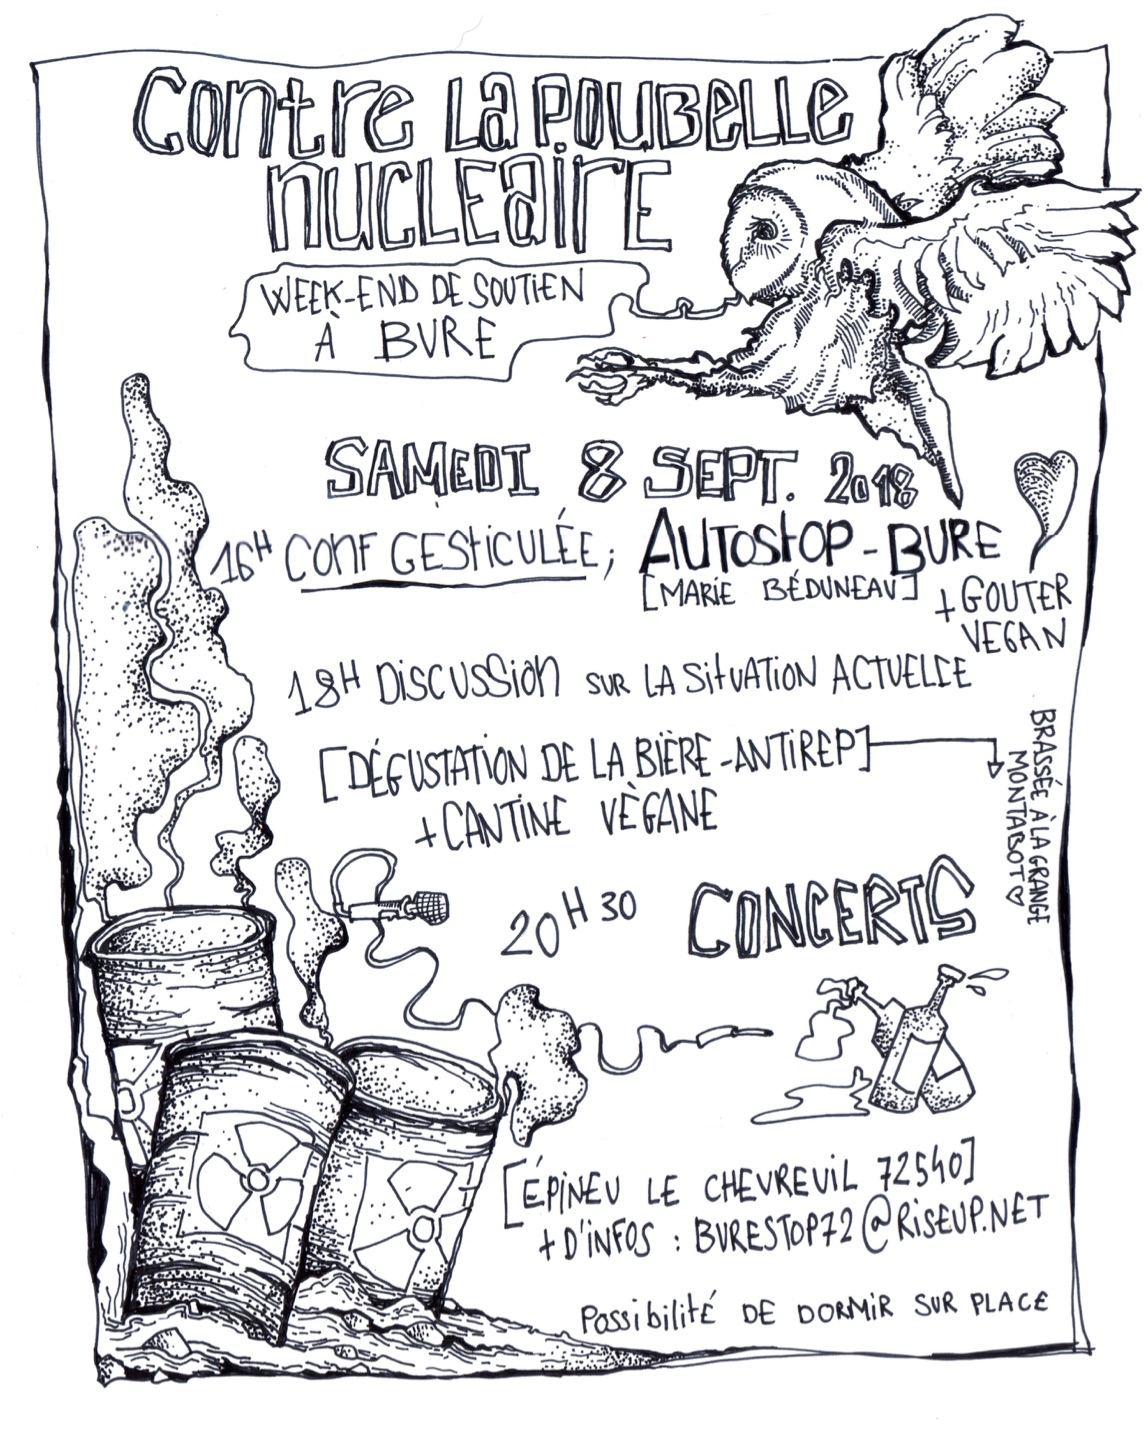 Contre La Poubelle
nucleaire
WEEK-END DE SOUTIEN
À BURE
SAMEDI 8 SEPT. 2018
16H CONF GESTICULÉE; AUTOSTOP-BURE
[MARIE BÉDUNEAU]
+ GOUTER
VEGAN
18H DISCUSSION SUR LA SITUATION ACTUELLE
[DÉGUSTATION DE LA BIÈRE-ANTIREP]
+ CANTINE VÈGANE
BRASSÉE À LA GRANGE
MONTABOT ♡
20H30 CONCERTS
[ÉPINEU LE CHEVREUIL 72540]
+ D'INFOS : BURESTOP72@RISEUP.NET
POSSIBILITÉ DE DORMIR SUR PLACE